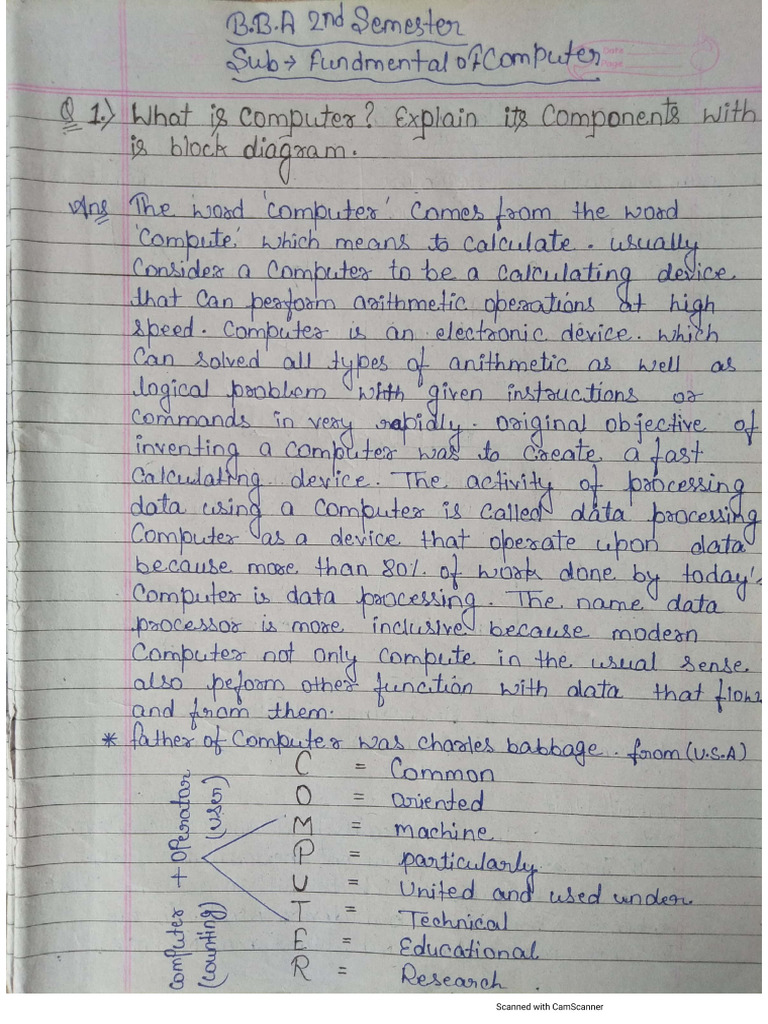 B.B.A 2nd Semester
Sub → Fundmental of Computer
Date
Page
Q 1.) What is computer? Explain its Components with
is block diagram.
Ans The word 'computer' comes from the word
'compute' which means to calculate. usually
Consider a computer to be a calculating device
that can perform arithmetic operations at high
speed. Computer is an electronic device. which
Can solved all types of anithmetic as well as
logical problem with given instructions or
commands in very rapidly. original objective of
inventing a computer was to create a fast
Calculating device. The activity of processing
data using a computer is called data processing
Computer as a device that operate upon data
because more than 80% of work done by today's
Computer is data processing. The name data
processor is more inclusive because modern
Computer not only compute in the usual sense
also peform other function with data that flows
and from them.
* father of Computer was charles babbage. from (U.S.A)
C = Common
O = Oriented
M = machine
P = particularly
U = United and used under
T = Technical
E = Educational
R = Research.
Computer + Operator
(counting) (user)
Scanned with CamScanner